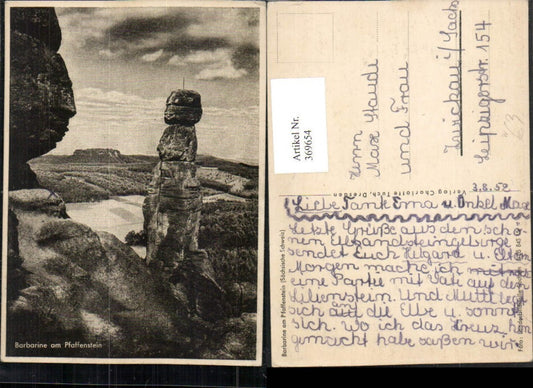 Barbarine am Pfaffenstein
Artikel Nr.
369654
Herrn
Max Staude
und Frau
Zwickau i/Sachs
Leipzigerstr. 154
Verlag Charlotte Tuch, Dresden
Barbarine am Pfaffenstein (Sächsische Schweiz)
3.8.52
Liebe Tante Erna u. Onkel Max
Letzte Grüße aus den schö
nen Elbsandsteingebirge
sendet Euch Helgard u. Eltern
Morgen mache ich
eine Partie mit Vati auf den
Lilienstein. Und Mutti legt
sich auf die Elbe u. sonnt
sich. Wo ich das Kreuz hin
gemacht habe saßen wir.